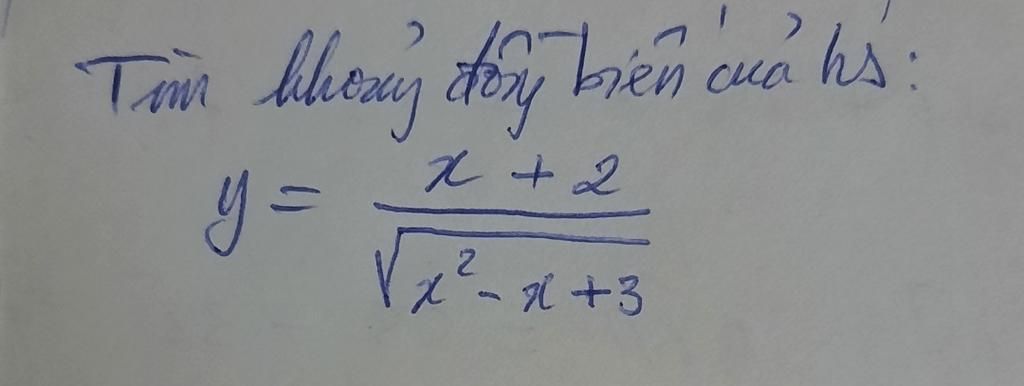 Tìm khoảng đồng biến của hs:
y = \frac{x + 2}{\sqrt{x^2 - x + 3}}